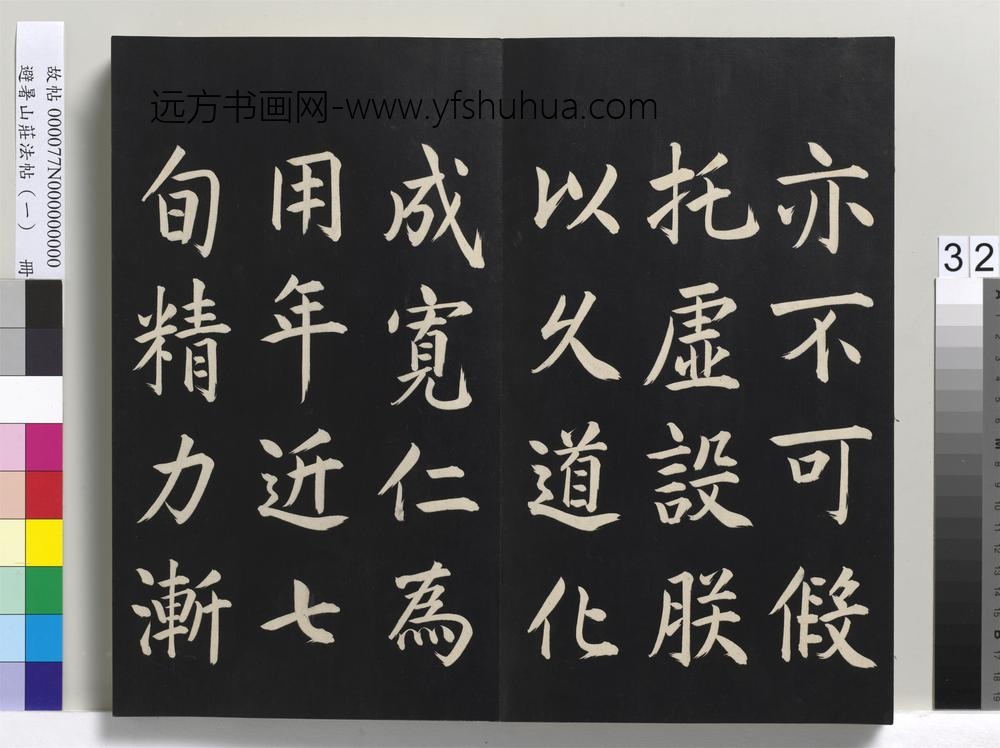 远方书画网-www.yfshuhua.com
亦不可假
托虛設朕
以久道化
成寬仁為
用年近七
旬精力漸
故帖 000077N000000000
避暑山莊法帖（一） 冊
32